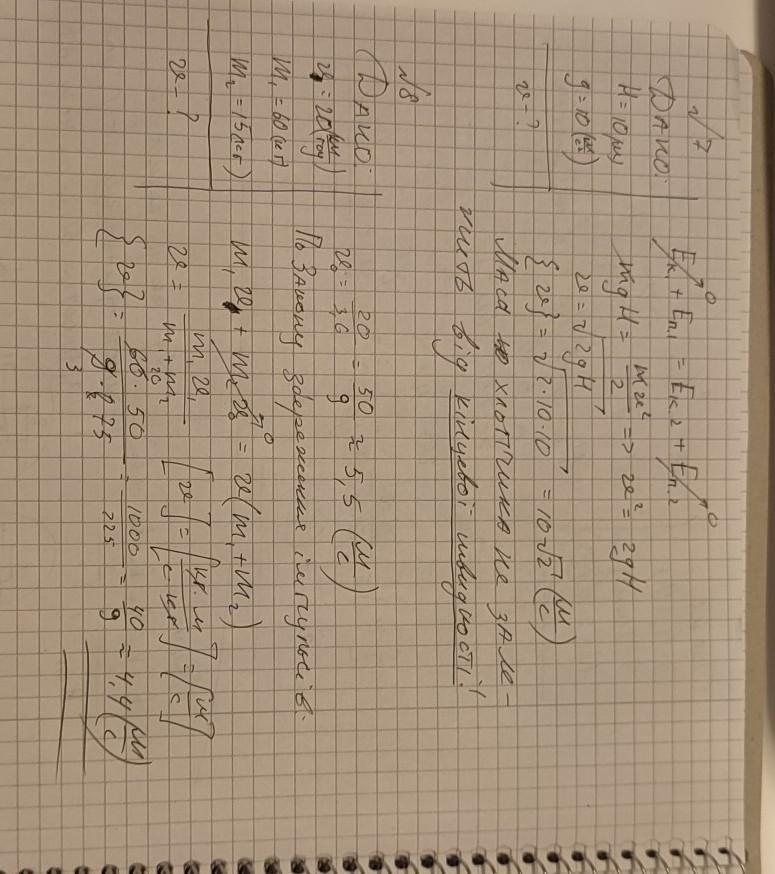 √7
Дано:
H = 10 м
g = 10 (м/с²)
v - ?
Eк1 + Eп.1 = Eк.2 + Eп.2
mgH = mv²/2 => v² = 2gH
v = √2gH
{v} = √2·10·10 = 10√2 (м/с)
Маса хлопчика не зале-
жить від кінцевої швидкості!
√8
Дано:
v₁ = 20 (км/год)
m₁ = 60 (кг)
m₂ = 15 (кг)
v - ?
v₀ = 20/3,6 = 50/9 ≈ 5,5 (м/с)
По Закону збереження імпульсів:
m₁v₁ + m₂v₂ = v(m₁+m₂)
v = m₁v₁/m₁+m₂ [v] = [кг·м/с·кг] = [м/с]
{v} = 60·50/9·75 = 1000/225 = 40/9 ≈ 4,4 (м/с)